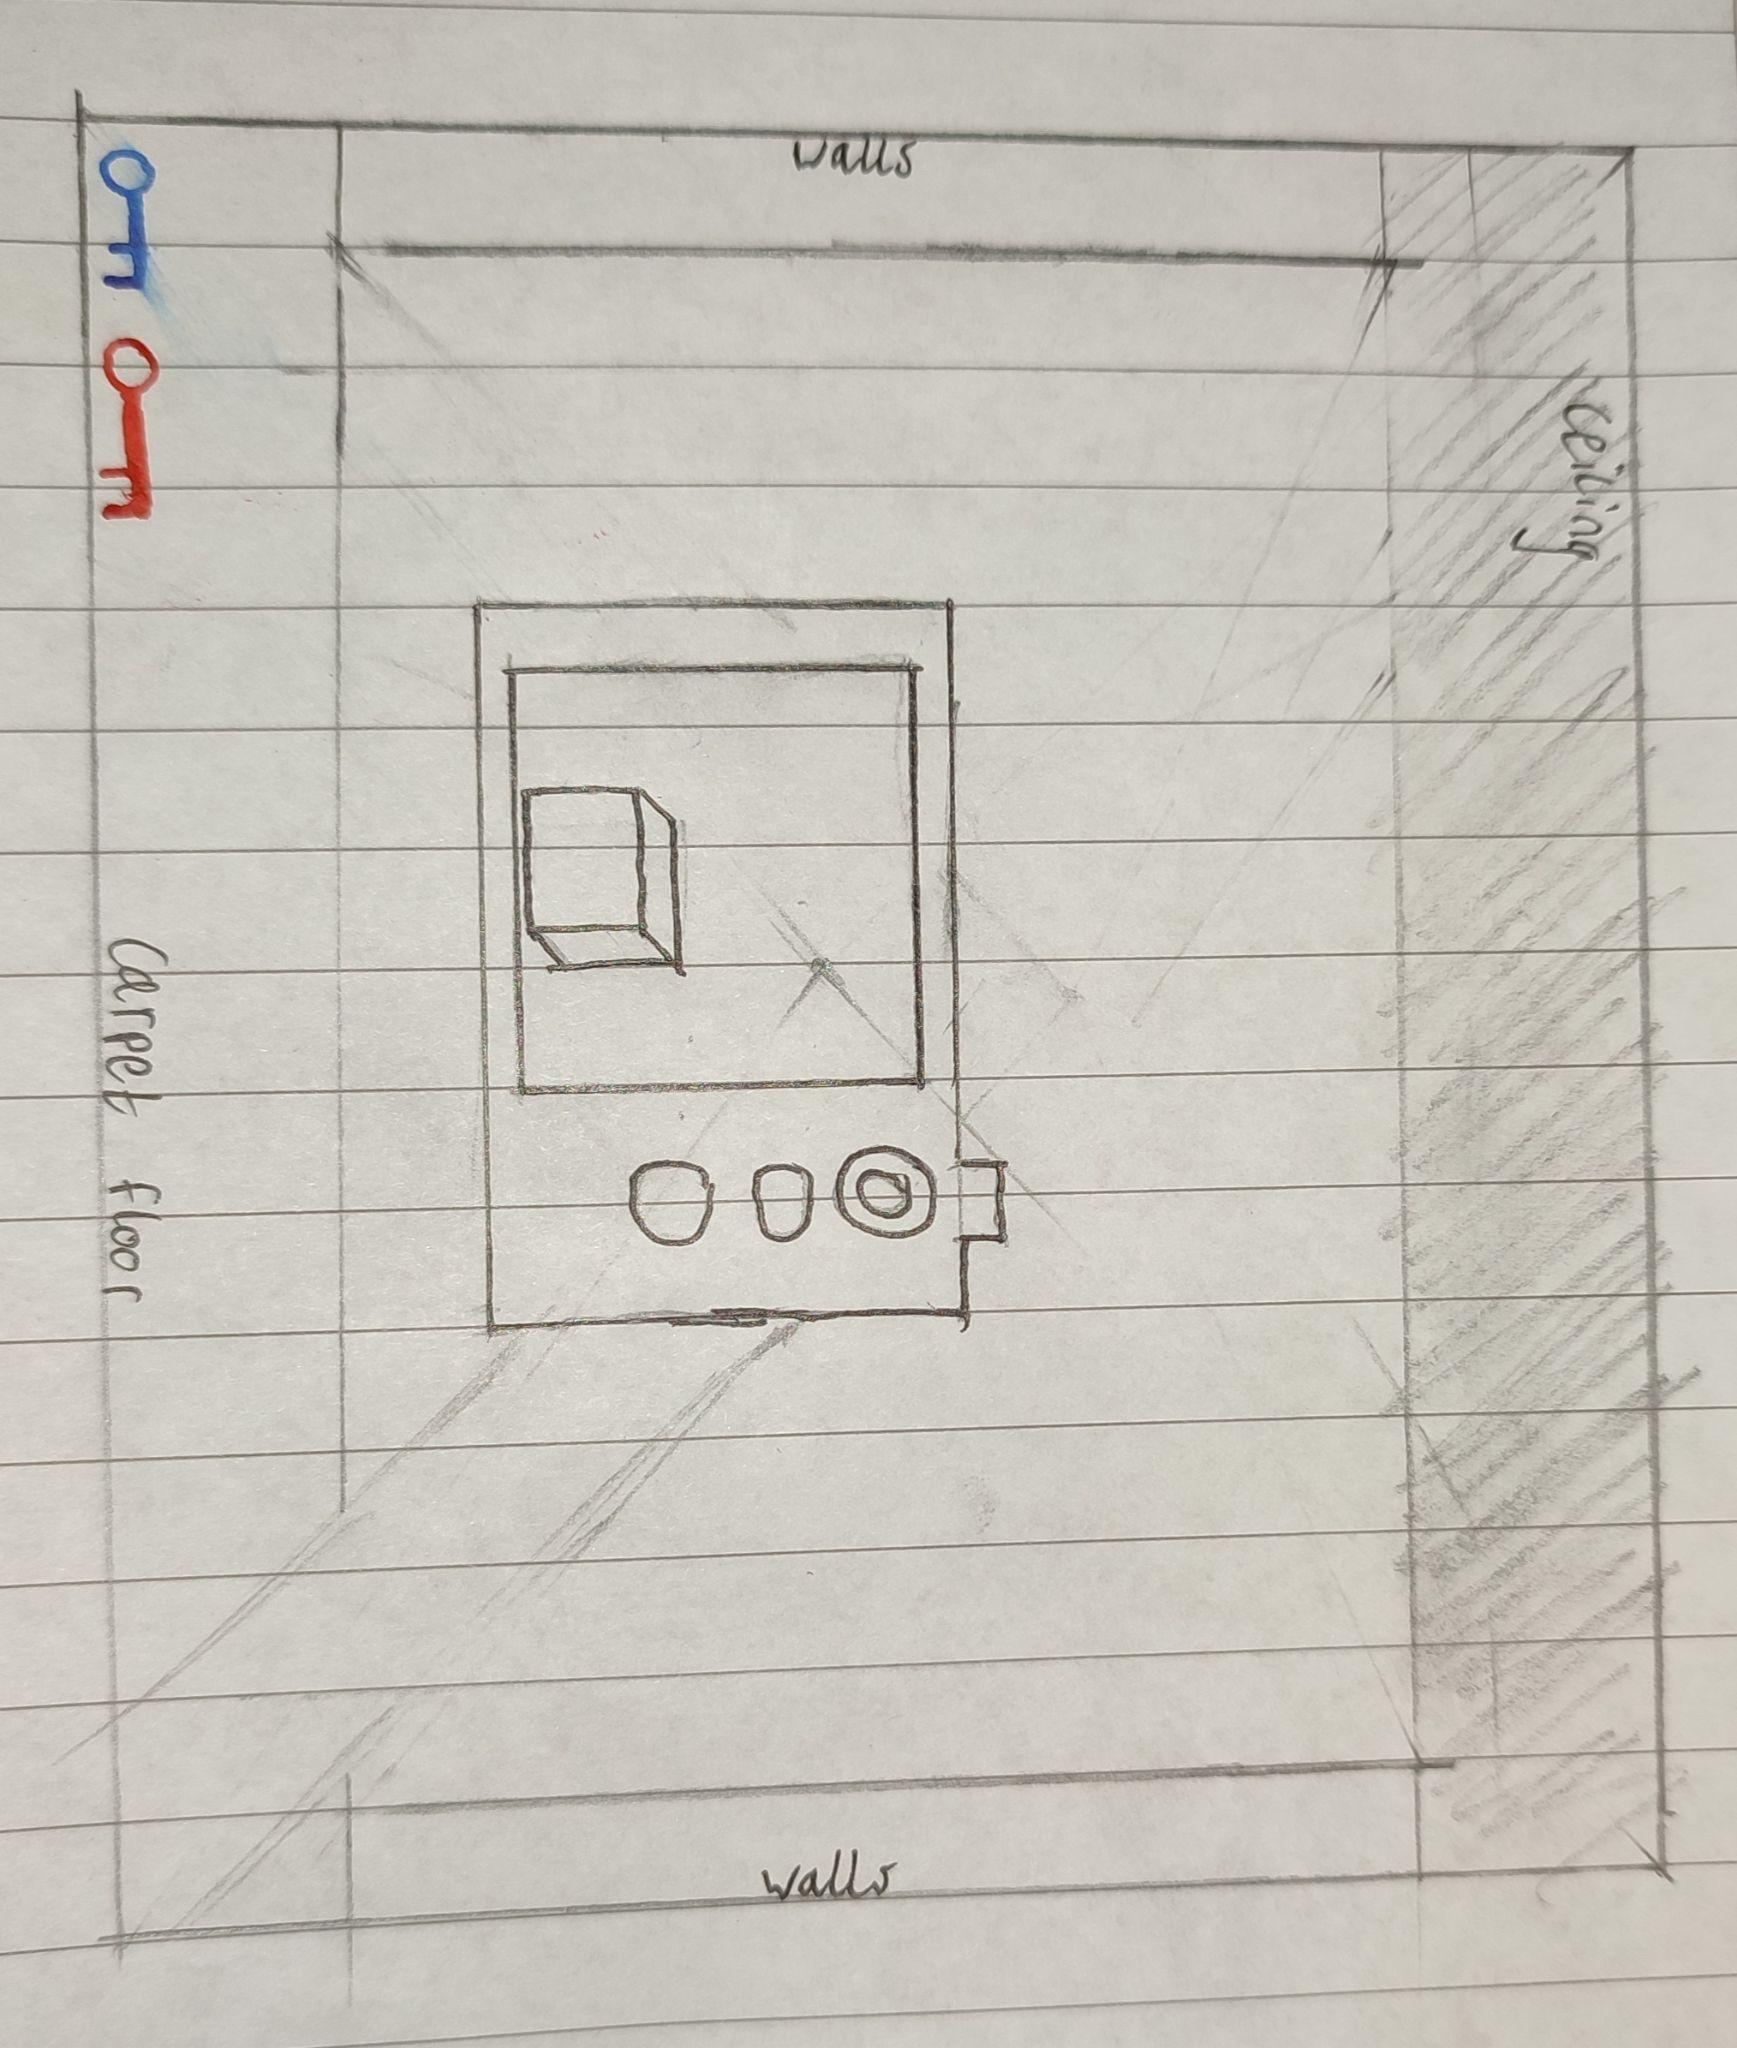 walls
ceiling
Carpet floor
walls